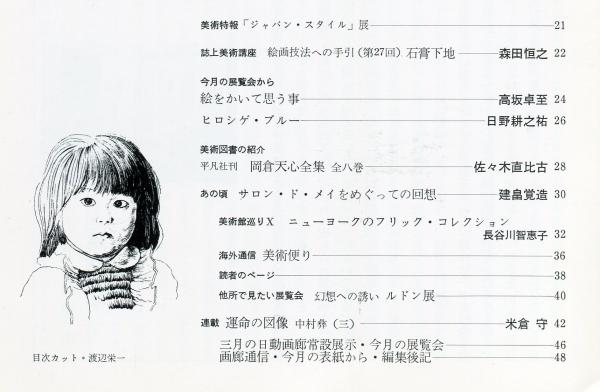 美術特報「ジャパン・スタイル」展 21
誌上美術講座 絵画技法への手引(第27回) 石膏下地 森田恒之 22
今月の展覧会から
絵をかいて思う事 高坂卓至 24
ヒロシゲ・ブルー 日野耕之祐 26
美術図書の紹介
平凡社刊 岡倉天心全集 全八巻 佐々木直比古 28
あの頃 サロン・ド・メイをめぐっての回想 建畠覚造 30
美術館巡りX ニューヨークのフリック・コレクション
長谷川智恵子 32
海外通信 美術便り 36
読者のページ 38
他所で見たい展覧会 幻想への誘い ルドン展 40
連載 運命の図像 中村彝(三) 米倉 守 42
三月の日動画廊常設展示・今月の展覧会 46
画廊通信・今月の表紙から・編集後記 48
目次カット・渡辺栄一